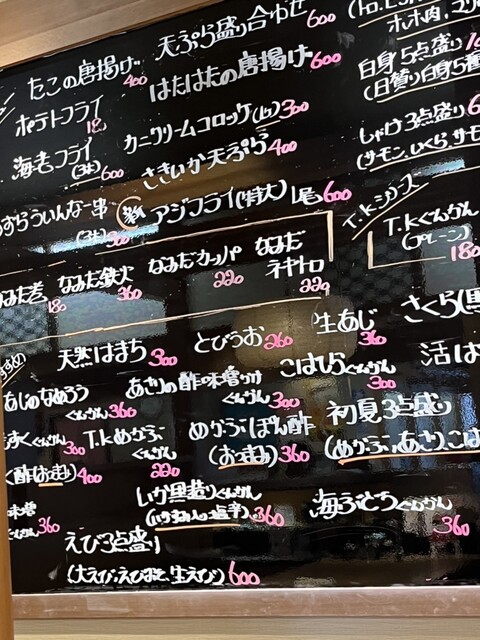 たこの唐揚げ 400
天ぷら盛り合わせ 600
ポテトフライ 180
はたはたの唐揚げ 600
海老フライ
(3本) 600
カニクリームコロッケ(1ヶ) 300
さきいか天ぷら 400
うずらういんなー串
(3本) 300
アジフライ(特大) 1尾 600
ホホ肉、
白身5点盛り
(日替り白身5種
しゃけ3点盛り
(サーモン、いくら、サモ
T.Kシリーズ
T.Kぐんかん
(プレーン) 180
なみだ巻 180
なみだ鉄火 360
なみだカッパ 220
なみだ
ネギトロ 220
天然はまち 300
とびうお 260
生あじ 360
さくら(馬
あじのなめろう
ぐんかん 360
あさりの酢味噌かけ
ぐんかん 300
こはしらぐんかん 300
活は
もずくぐんかん 300
T.Kめかぶ
ぐんかん 220
めかぶぽん酢
(おつまみ) 360
初夏3点盛り
(めかぶ、あさり、こは
く酢(おつまみ) 400
ぐんかん 360
いか黒造りぐんかん 360
海ぶどうぐんかん 360
えび3点盛り
(大えび、えびみそ、生えび) 600